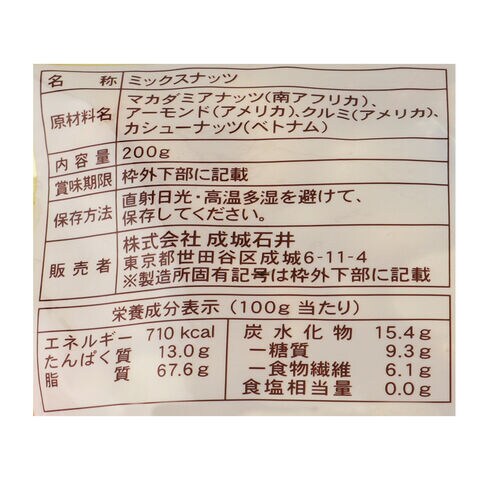 名称 ミックスナッツ
原材料名 マカダミアナッツ(南アフリカ)、
アーモンド(アメリカ)、クルミ(アメリカ)、
カシューナッツ(ベトナム)
内容量 200g
賞味期限 枠外下部に記載
保存方法 直射日光・高温多湿を避けて、
保存してください。
販売者 株式会社 成城石井
東京都世田谷区成城6-11-4
※製造所固有記号は枠外下部に記載
栄養成分表示 (100g 当たり)
エネルギー 710 kcal
たんぱく質 13.0g
脂質 67.6g
炭水化物 15.4g
ー糖質 9.3g
ー食物繊維 6.1g
食塩相当量 0.0g